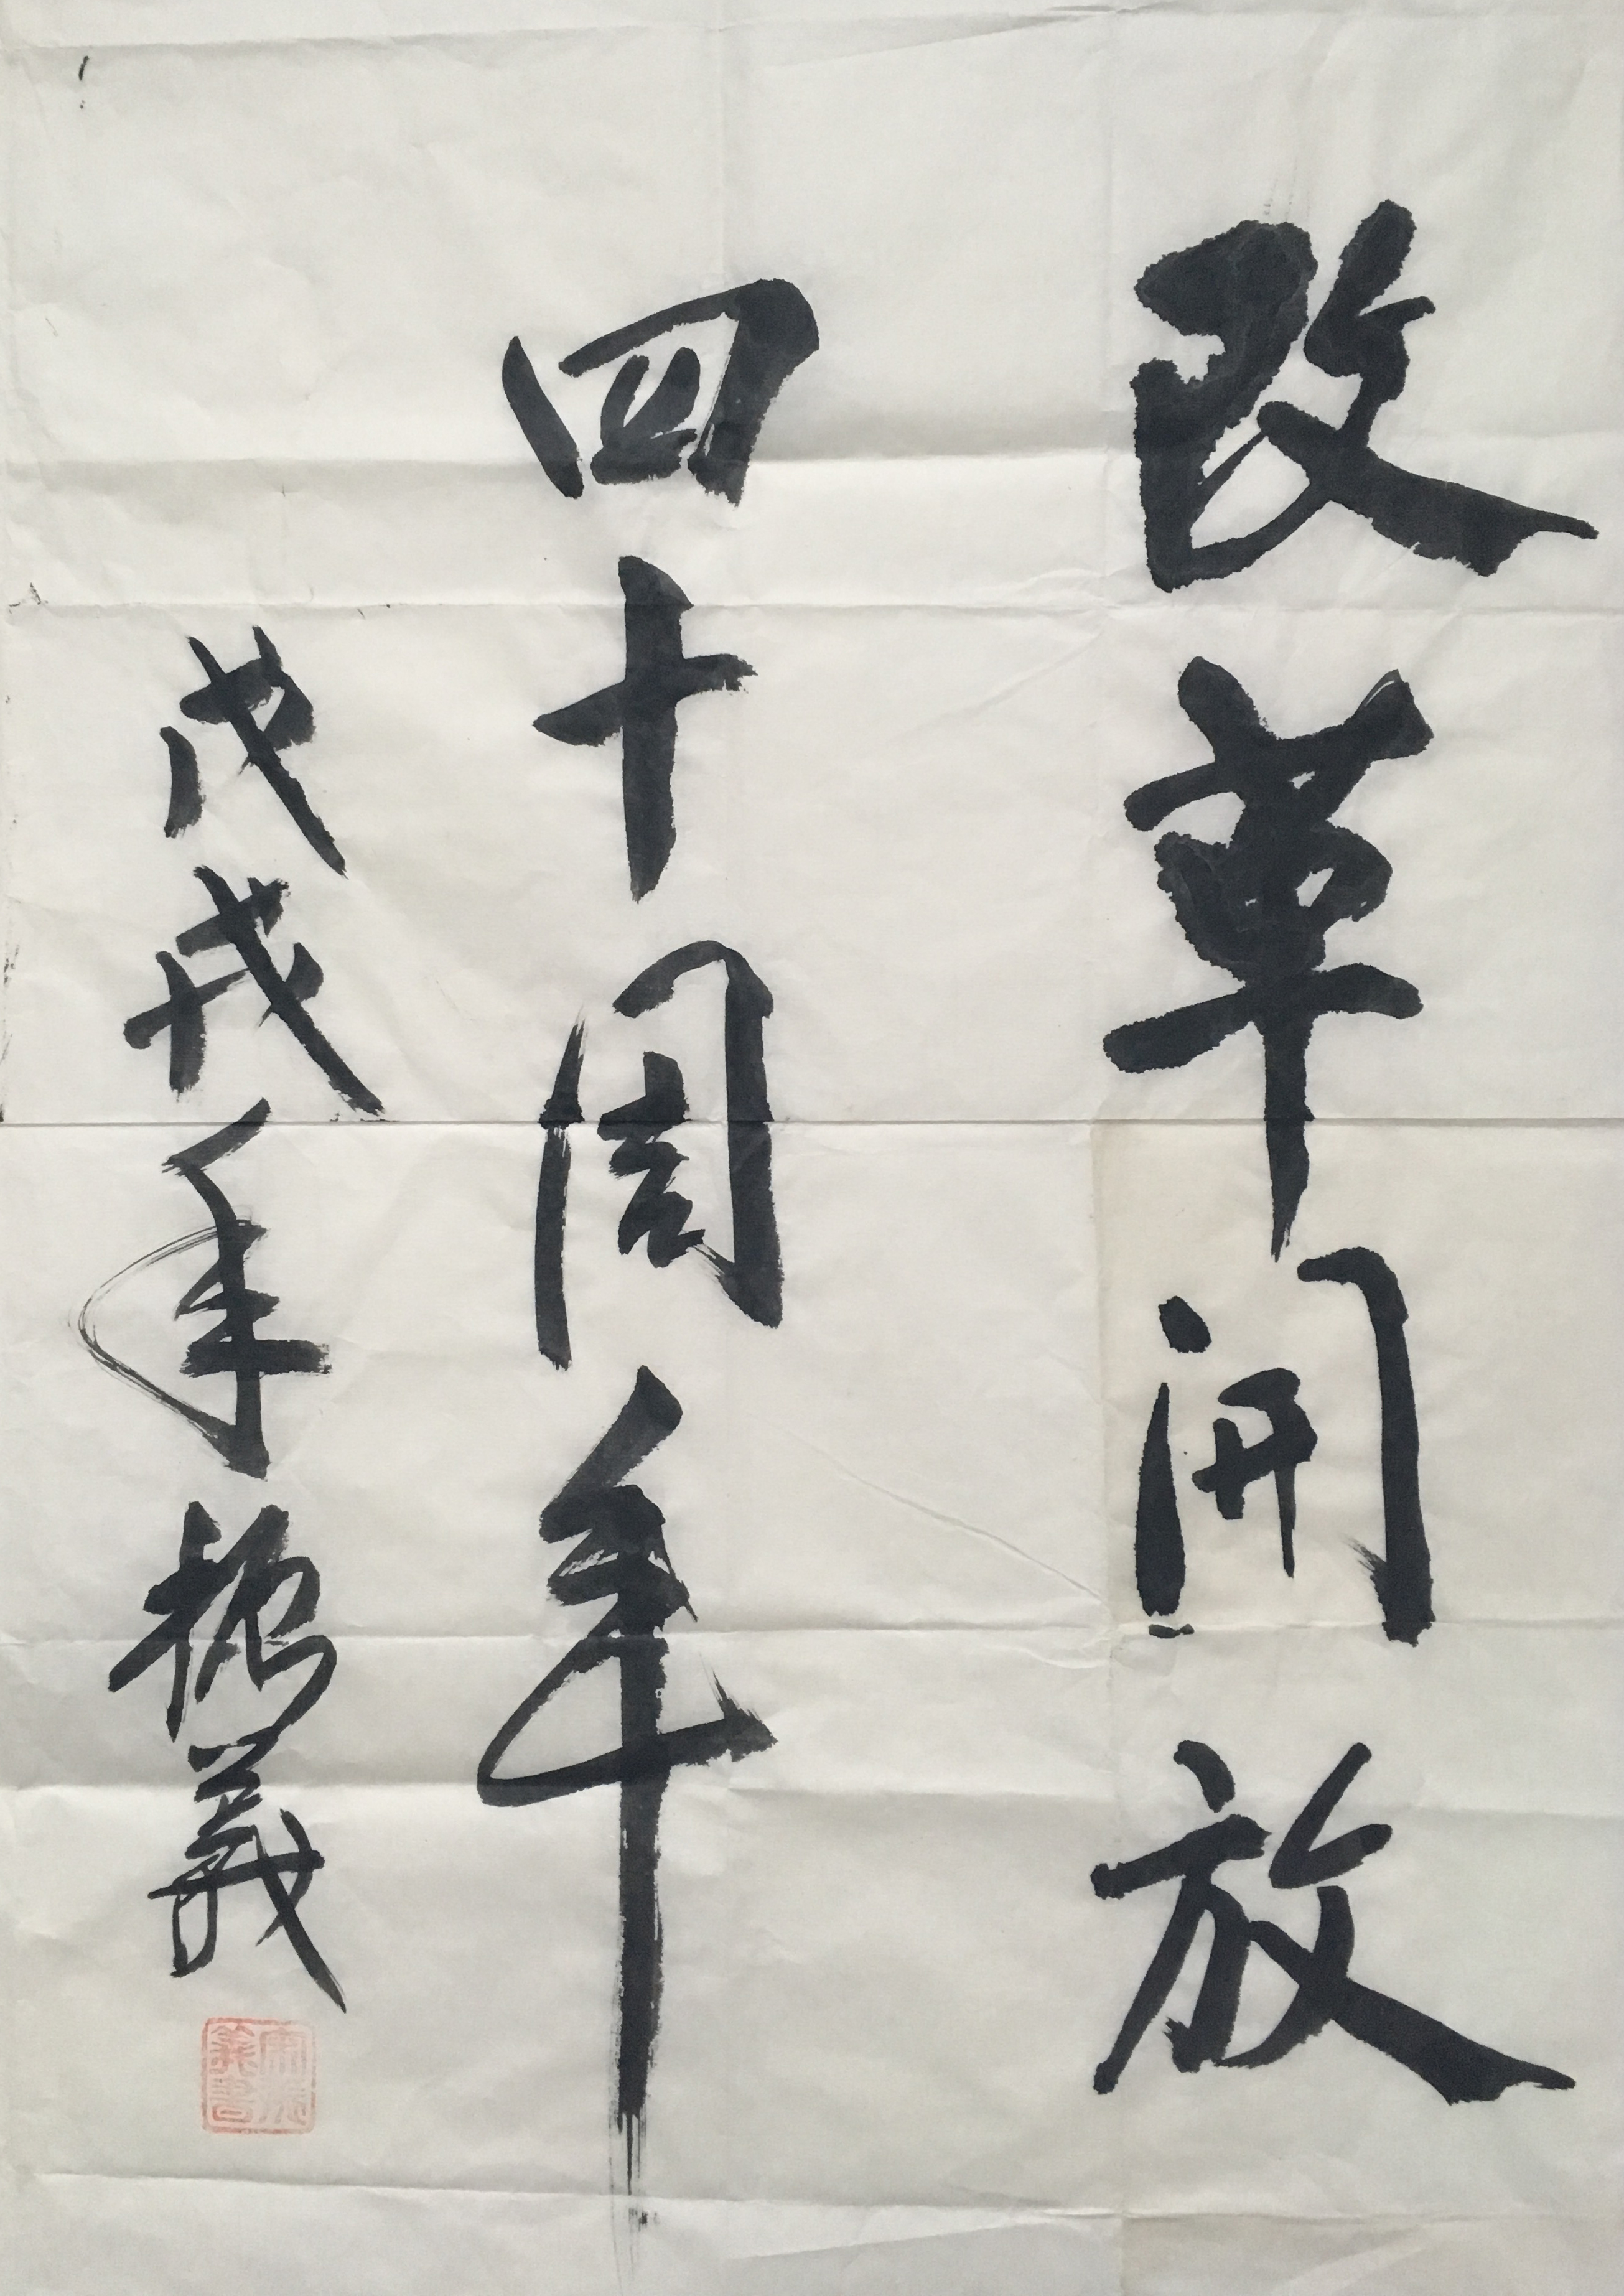 改革開放
四十周年
戊戌年振義